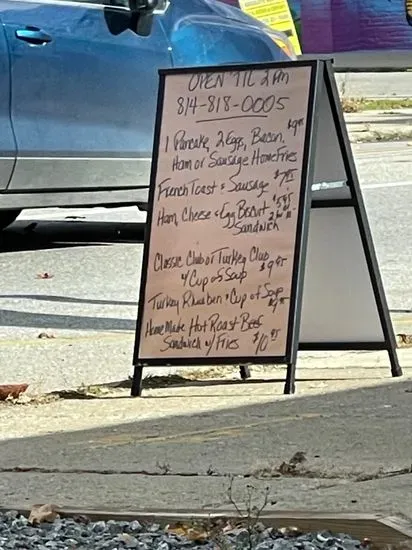 OPEN 'TIL 2 PM
814-818-0005
1 Pancake, 2 Eggs, Bacon, $9.95
Ham or Sausage Home Fries
French Toast & Sausage $7.95
Ham, Cheese & Egg Biscuit $5.95
Sandwich 2 for
Classic Club or Turkey Club
w/ Cup of Soup $9.95
Turkey Rueben & Cup of Soup
Home Made Hot Roast Beef
Sandwich w/ Fries $10.95